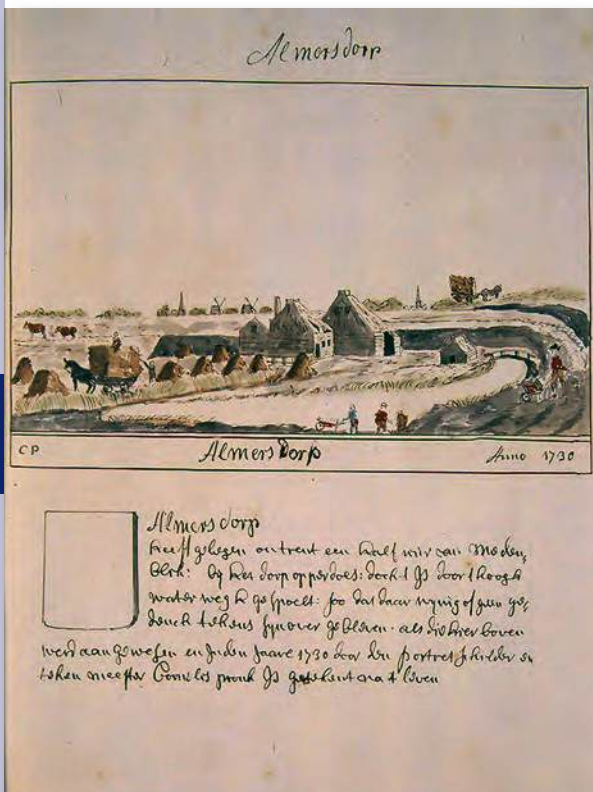 Almersdorp
CP Almers Dorp Anno 1730
Almersdorp
heeft gelegen ontrent een half uir van Meden,
blek: by het dorp opperdoes: doch t Is door t hoogh
water wegh gespoelt: soo dat daar wynig of geen ge,
denck tekens syn over gebleven. als die hier boven
werd aangewesen en In den Jaare 1730 door den portret schilder en
teken meester Cornelis pronk Is getekent na t leven